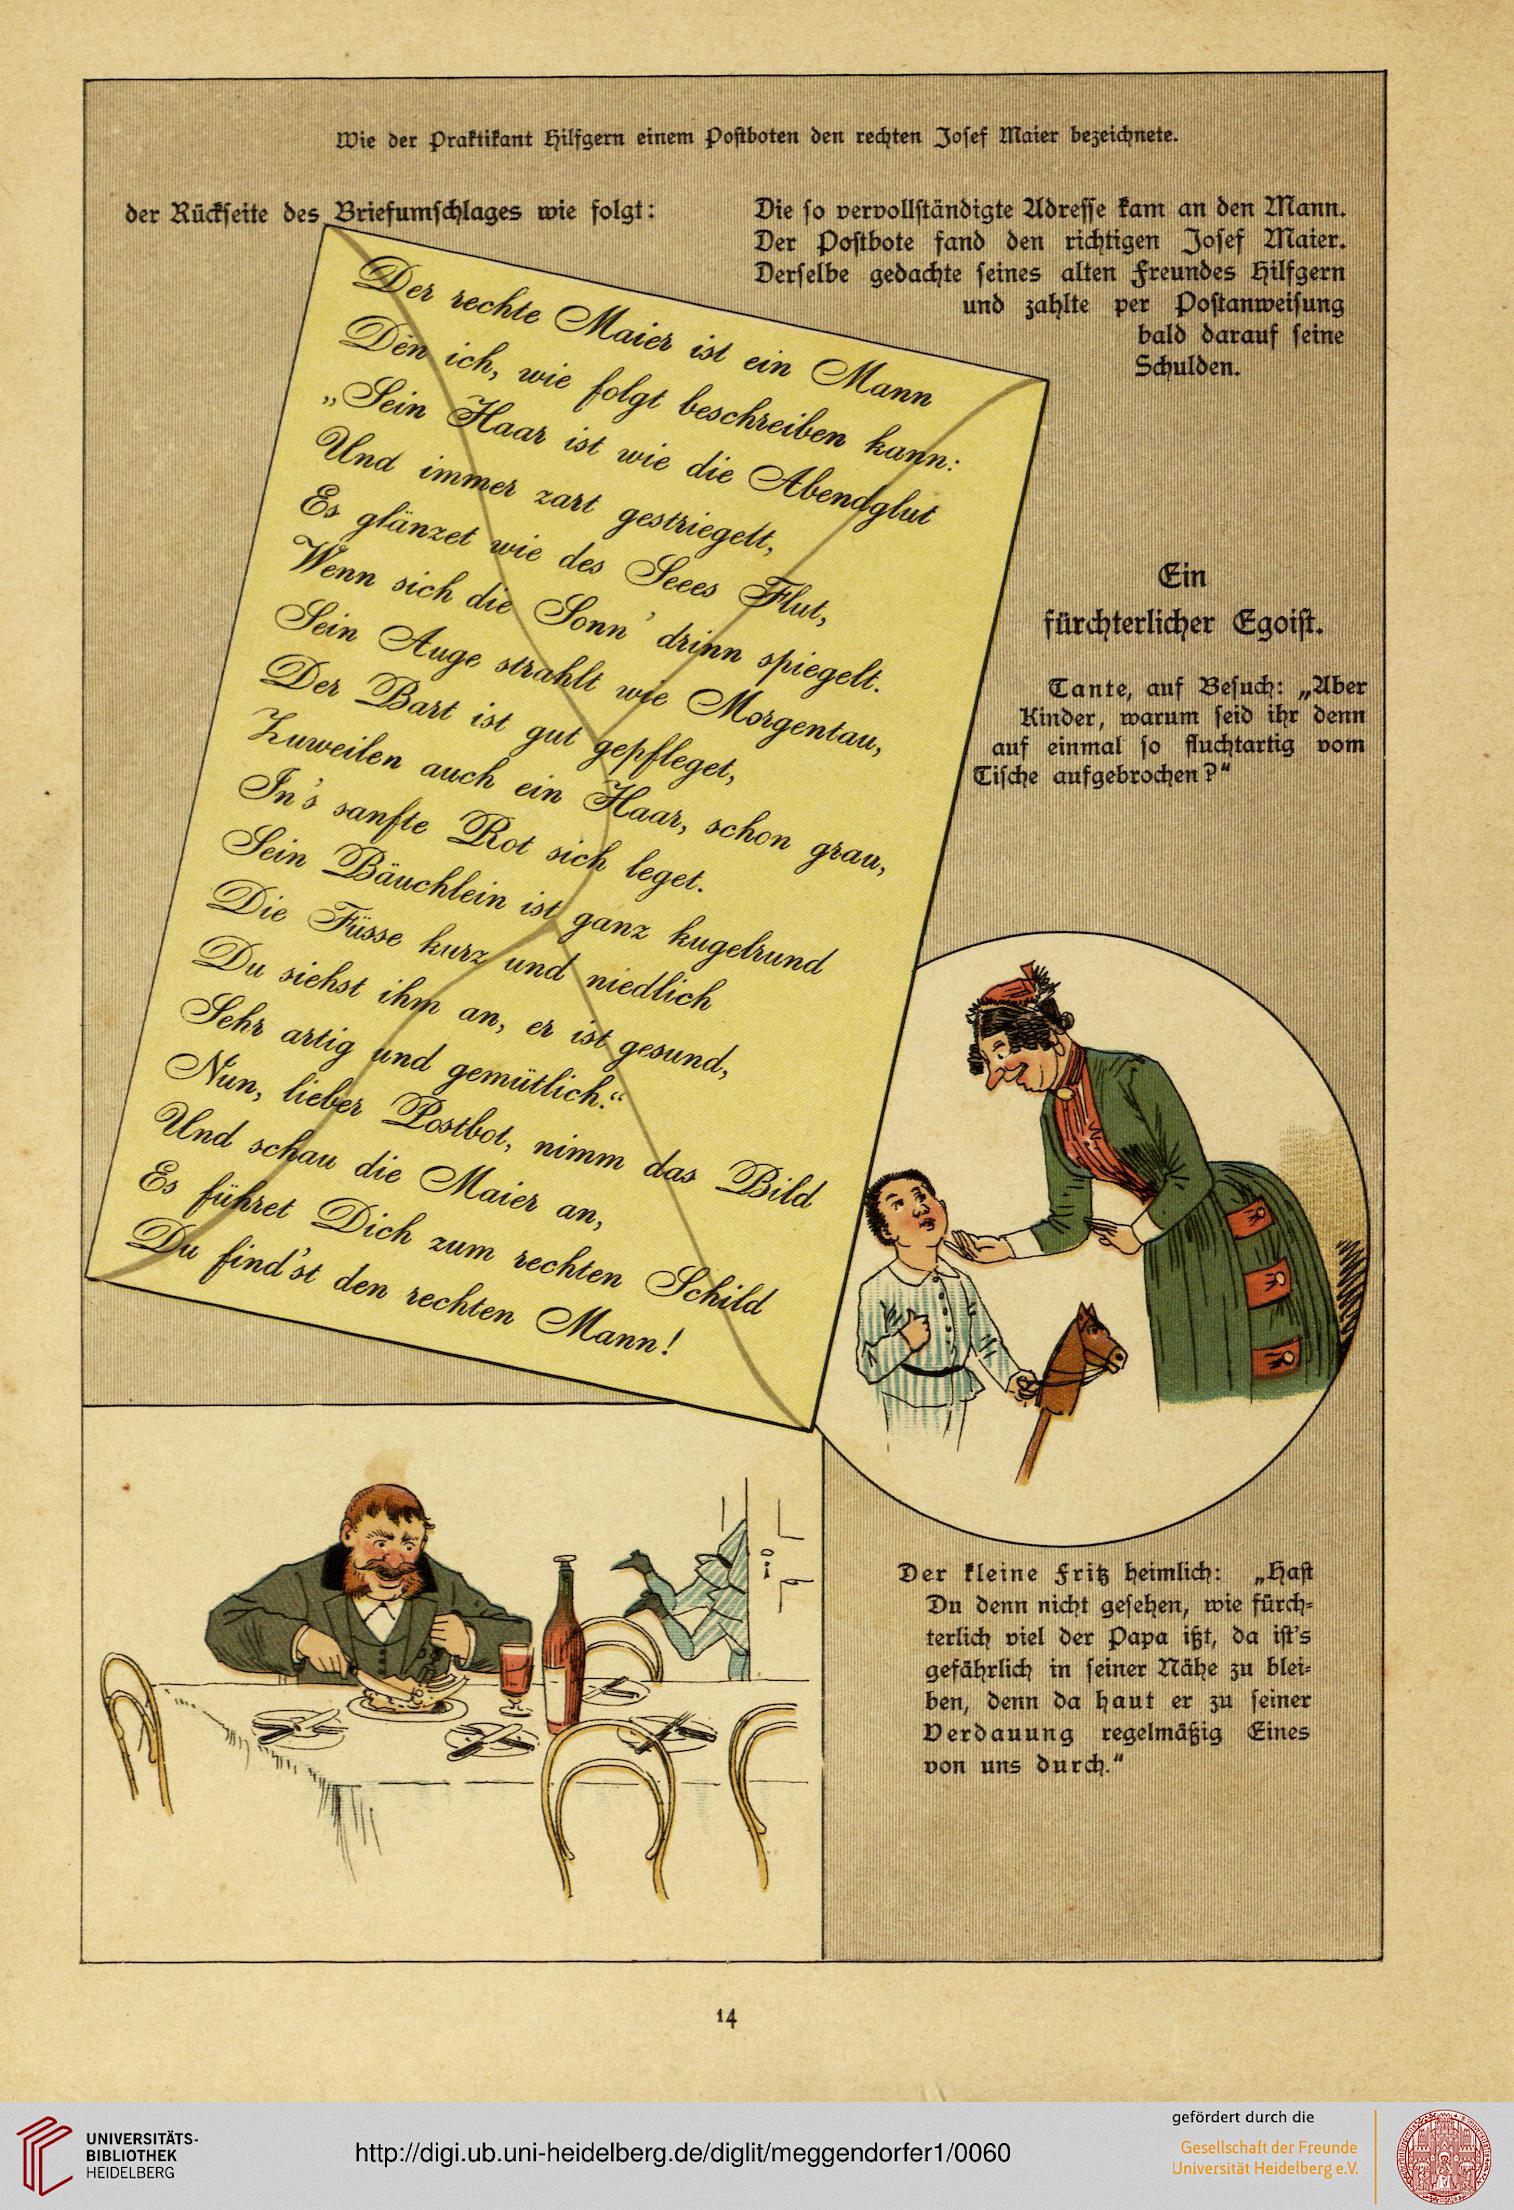 Wie der Praktikant Hilfgern einem Poſtboten den rechten Joſef Maier bezeichnete.
der Rückſeite des Briefumſchlages wie folgt:
Der rechte Maier ist ein Mann
Den ich, wie folgt beschreiben kann:
„Sein Haar ist wie die Abendglut
Und immer zart gestriegelt,
Es glänzet wie des Seees Flut,
Wenn sich die Sonn' drinn spiegelt.
Sein Auge strahlt wie Morgentau,
Der Bart ist gut gepfleget,
Zuweilen auch ein Haar, schon grau,
In's sanfte Rot sich leget.
Sein Bäuchlein ist ganz kugelrund
Die Füsse kurz und niedlich
Du siehst ihm an, er ist gesund,
Sehr artig und gemütlich.“
Nun, lieber Postbot, nimm das Bild
Und schau die Maier an,
Es führet Dich zum rechten Schild
Du find'st den rechten Mann!
Die ſo vervollſtändigte Adreſſe kam an den Mann.
Der Poſtbote fand den richtigen Joſef Maier.
Derſelbe gedachte ſeines alten Freundes Hilfgern
und zahlte per Poſtanweiſung
bald darauf ſeine
Schulden.
Ein
fürchterlicher Egoiſt.
Tante, auf Beſuch: „Aber
Kinder, warum ſeid ihr denn
auf einmal ſo fluchtartig vom
Tiſche aufgebrochen?“
Der kleine Fritz heimlich: „Haſt
Du denn nicht geſehen, wie fürch-
terlich viel der Papa ißt, da iſt's
gefährlich in ſeiner Nähe zu blei-
ben, denn da haut er zu ſeiner
Verdauung regelmäßig Eines
von uns durch.“
14
UNIVERSITÄTS-
BIBLIOTHEK
HEIDELBERG
http://digi.ub.uni-heidelberg.de/diglit/meggendorfer1/0060
gefördert durch die
Gesellschaft der Freunde
Universität Heidelberg e.V.